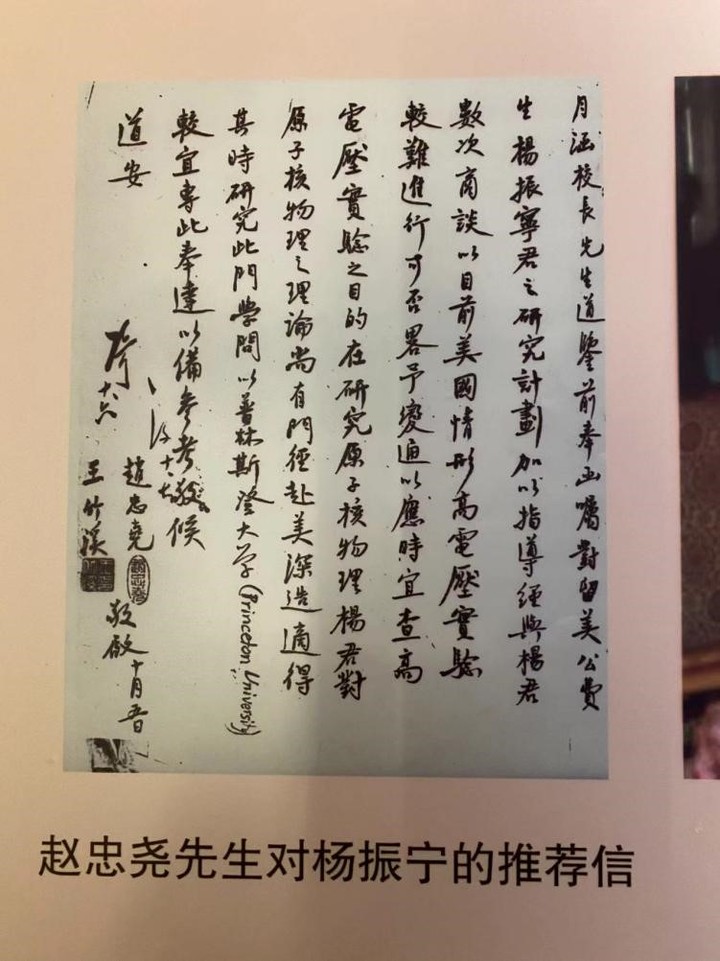 月涵校長先生道鑒前奉函囑對留美公費
生楊振寧君之研究計劃加以指導經與楊君
數次商談以目前美國情形高電壓實驗
較難進行可否畧予變通以應時宜查高
電壓實驗之目的在研究原子核物理楊君對
原子核物理之理論尚有門徑赴美深造適得
其時研究此門學問以普林斯登大学(Princeton University)
較宜專此奉達以備參考敬候
道安
趙忠堯
王竹溪
敬啟 十月五日
十六
十七
赵忠尧先生对杨振宁的推荐信